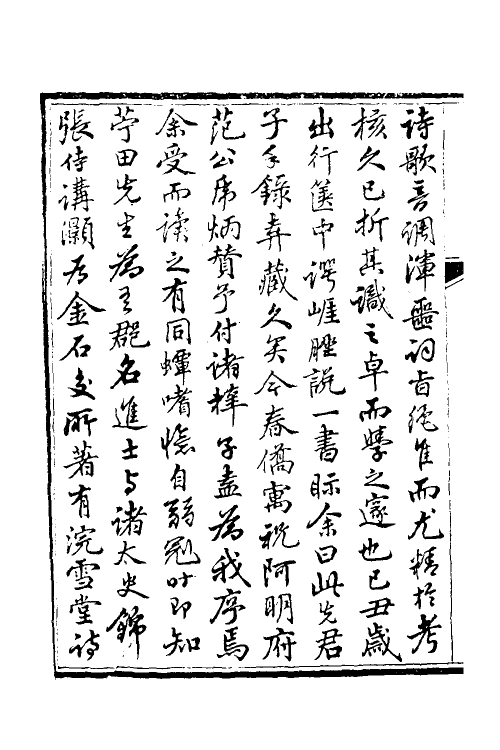 詩歌音調渾噩詞旨而尤精於考
核久已折其識之卓而學之邃也己丑歲
出行篋中謬崕脞說一書眎余曰此先君
子手錄弆藏久矣今春僑寓祝阿明府
范公席炳贊予付諸梓子盍為我序焉
余受而讀之有同蟫嗜憶自弱冠时即知
苧田先生為吾郡名進士与諸太史錦
張侍講灝为金石交所著有浣雪堂詩